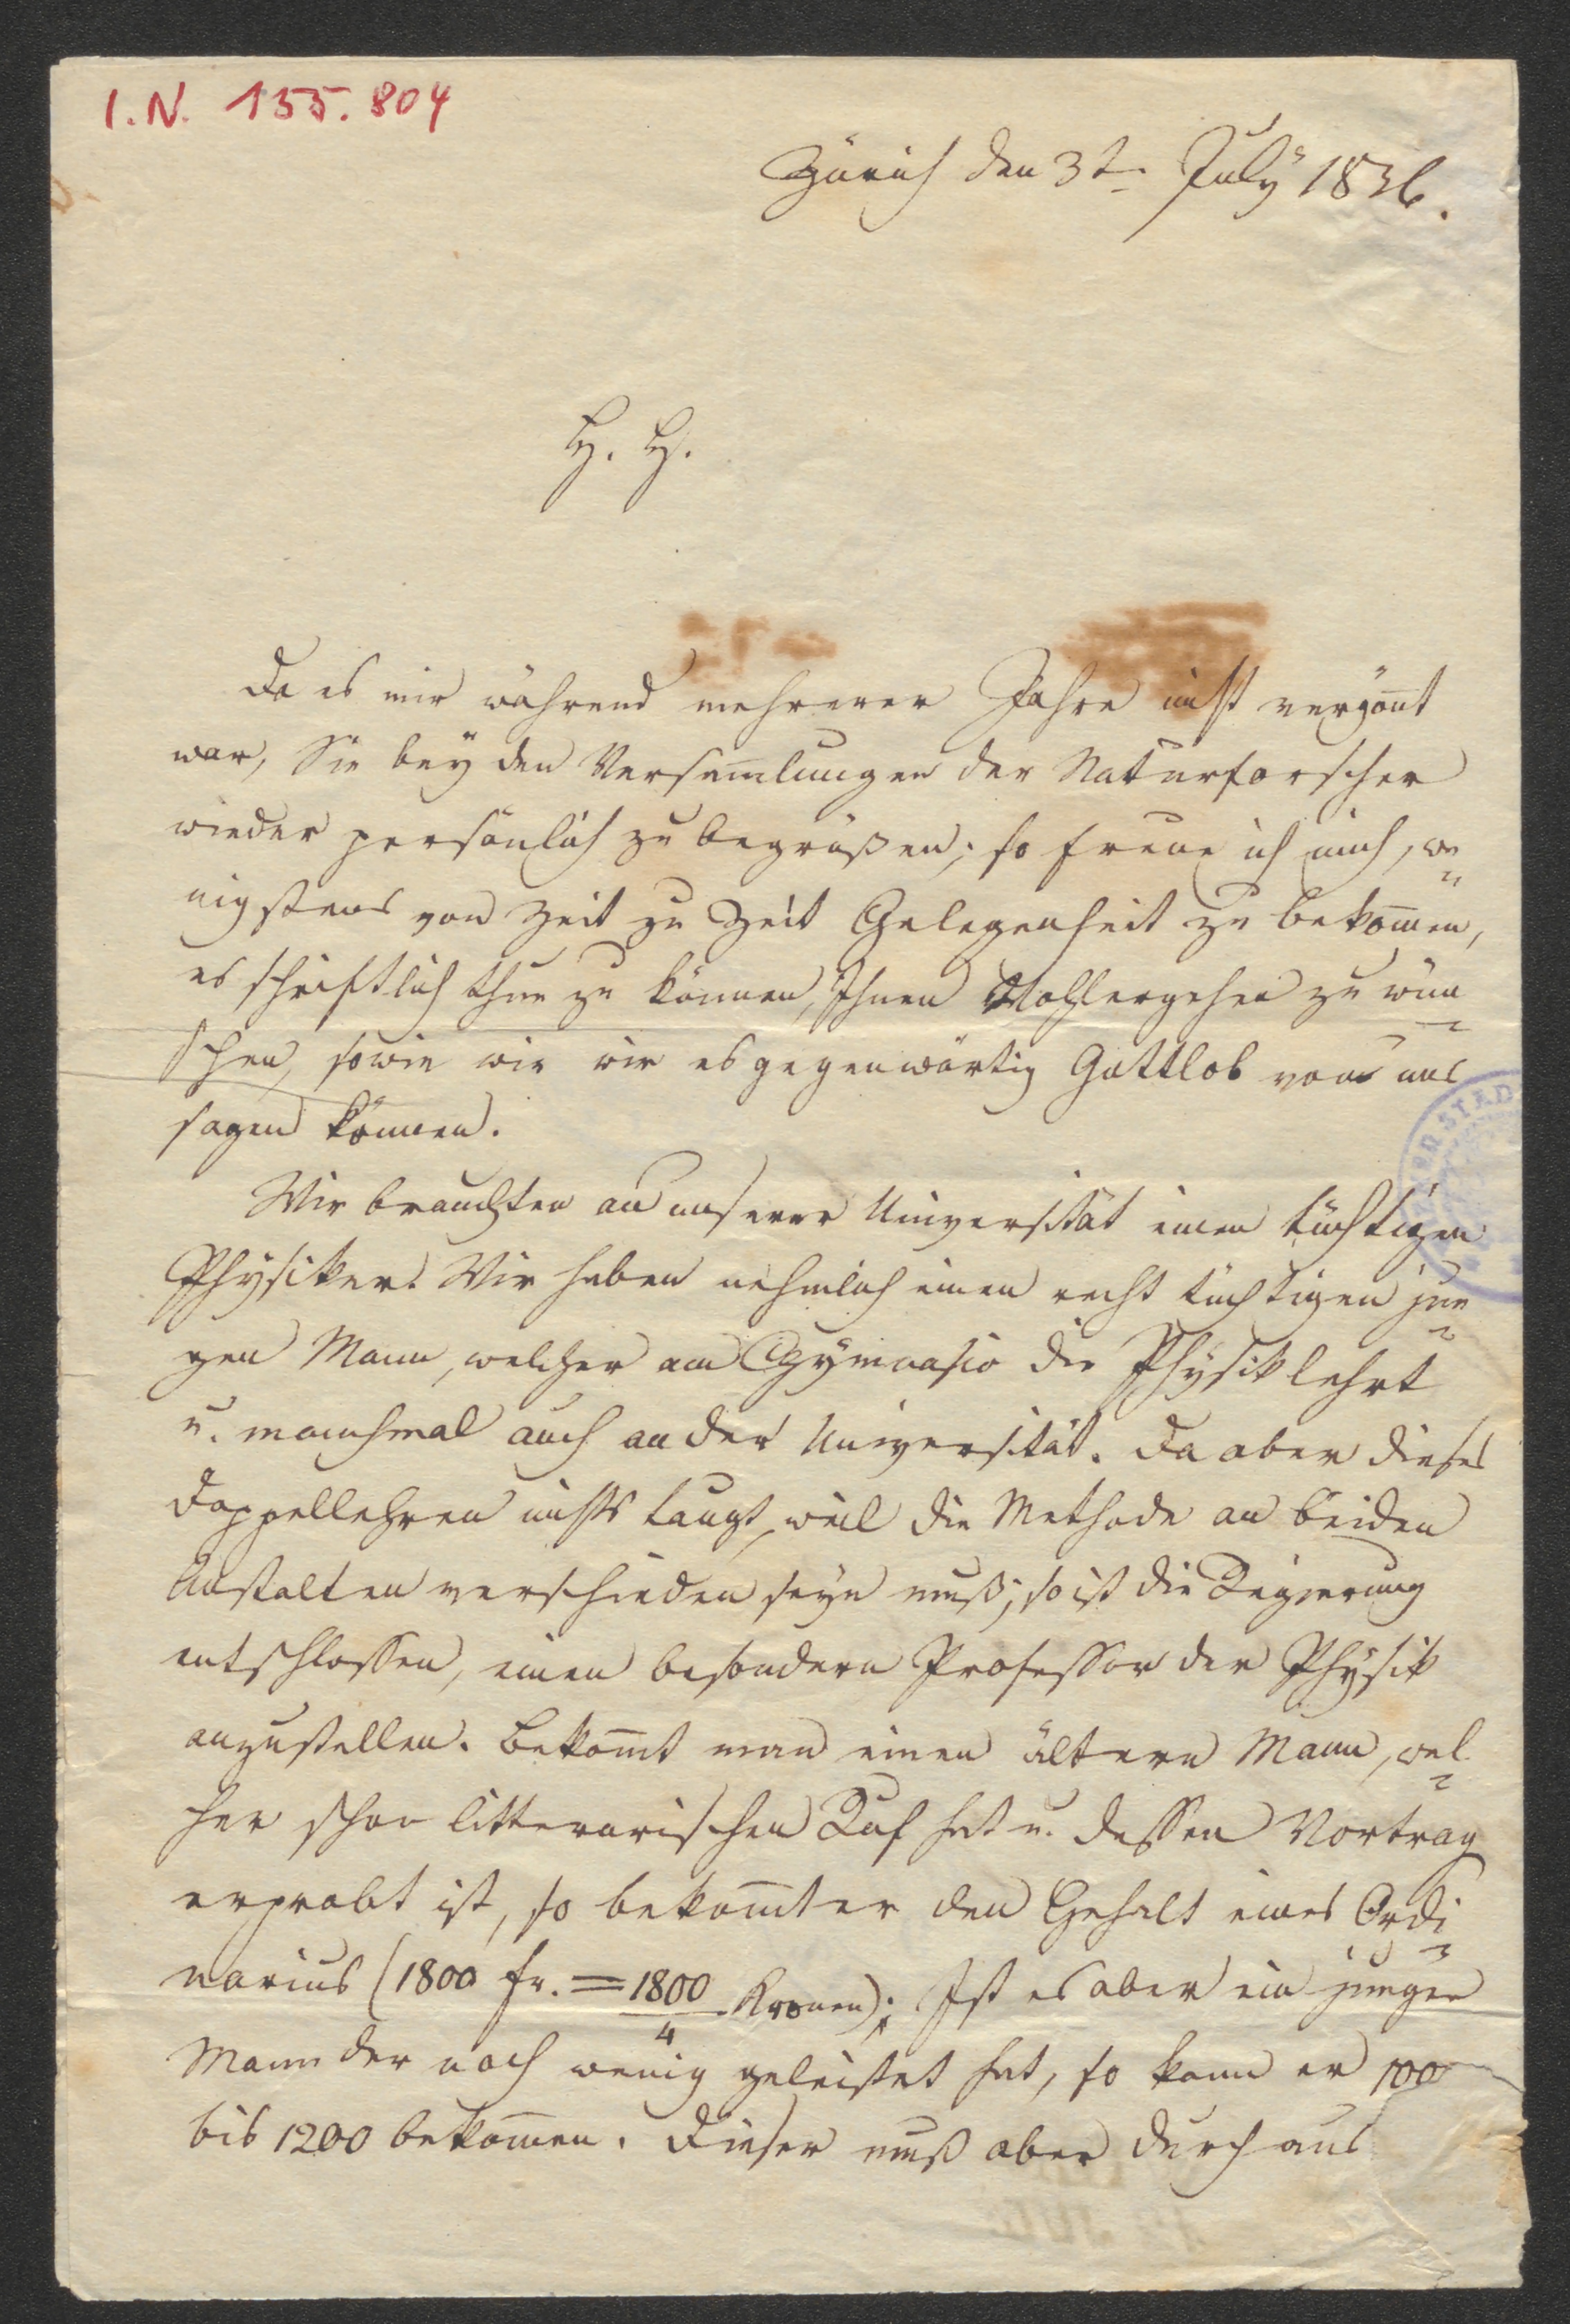 I.N. 155.804
Zürich den 3t. July 1836.
H. H.
Da es mir während mehrerer Jahre nicht vergönt
war, Sie bey den Versam̅lungen der Naturforscher
wieder persönlich zu begrüßen; so freue ich mich, we
nigstens von Zeit zu Zeit Gelegenheit zu bekom̅en,
es schriftlich thun zu können, Ihnen Wohlergehen zu wün
schen, sowie wir es gegenwärtig Gottlob von uns
sagen können.
Wir brauchten an unserer Universität einen tüchtigen
Physiker. Wir haben nehmlich einen recht tüchtigen jun
gen Mann, welcher am Gymnasio die Physik lehrt
u. manchmal auch an der Universität. Da aber dieses
Doppellehren nichts taugt, weil die Methode an beiden
Anstalten verschieden seyn muß; so ist die Regierung
entschlossen, einen besondern Professor der Physik
anzustellen. Bekom̅t man einen ältern Mann, wel
cher schon litterarischen Ruf hat u. dessen Vortrag
erprobt ist, so bekom̅t er den Gehalt eines Ordi
narius (1800 fr. = 1800/4 Kronen); Ist es aber ein junger
Mann der noch wenig geleistet hat, so kann er 100
bis 1200 bekom̅en. Dieser muß aber durchaus